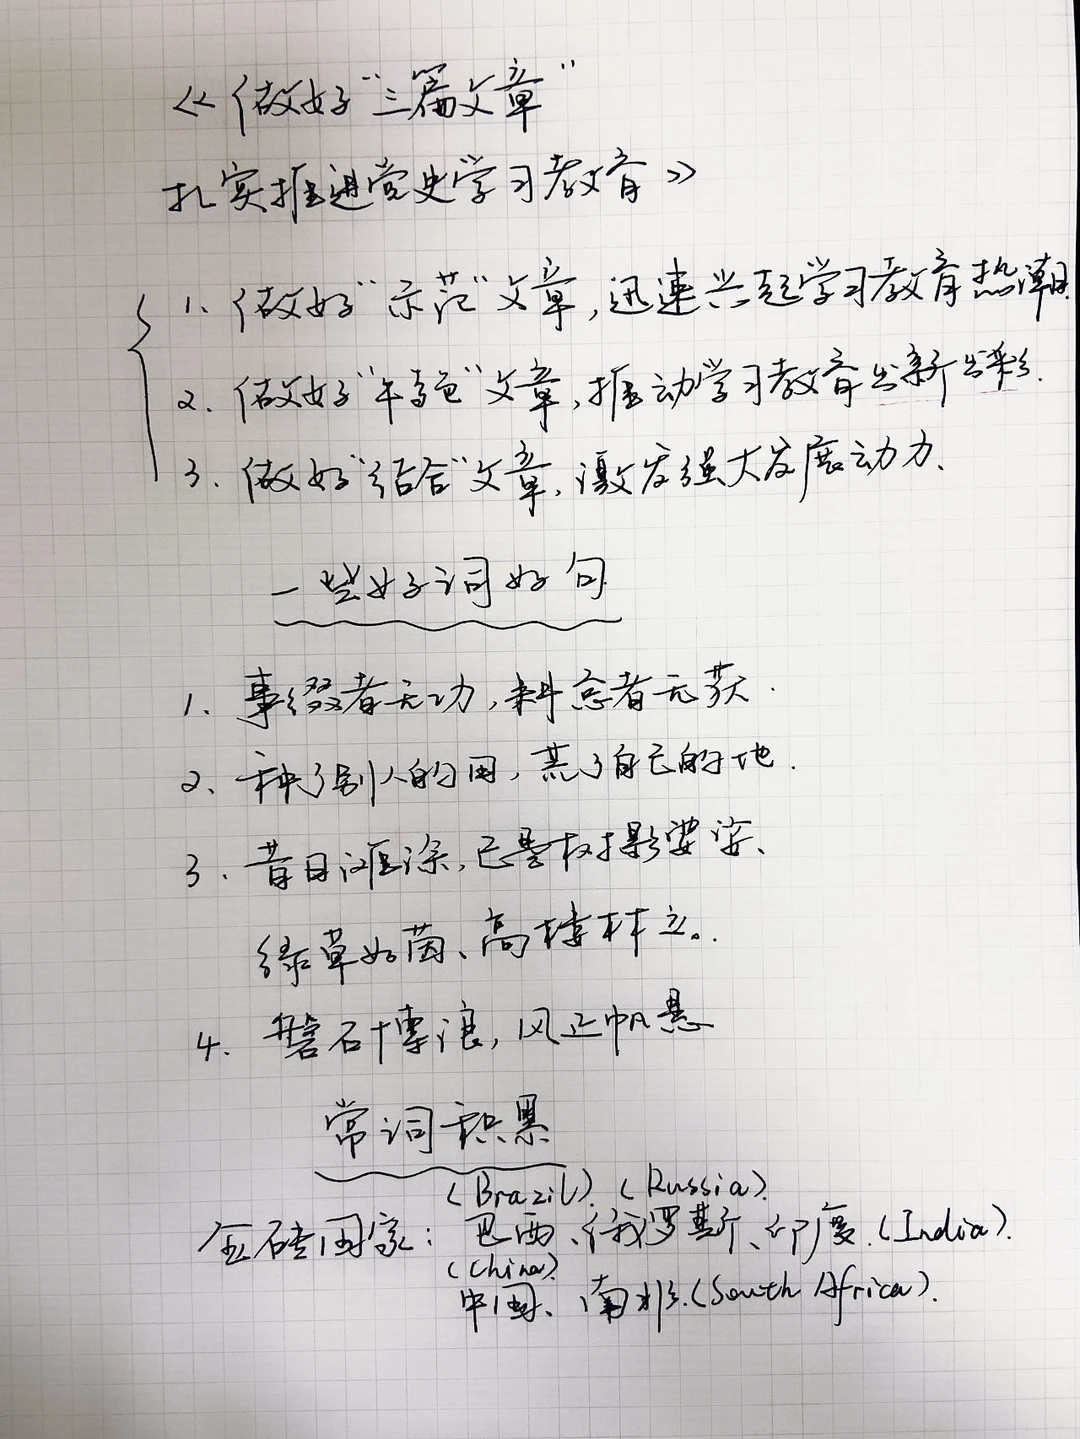 《做好“三篇文章”
扎实推进党史学习教育》
1. 做好“示范”文章,迅速兴起学习教育热潮.
2. 做好“特色”文章,推动学习教育出新出彩.
3. 做好“结合”文章,激发强大发展动力、
一些好词好句
1、事缀者无功,耕怠者无获.
2、种了别人的田,荒了自己的地.
3、昔日滩涂,已是树影婆娑、
绿草如茵、高楼林立。
4. 磐石博浪,风正帆悬
常词积累
(Brazil). (Russia).
金砖国家: 巴西、俄罗斯、印度.(India).
(China).
中国、南非.(South Africa).